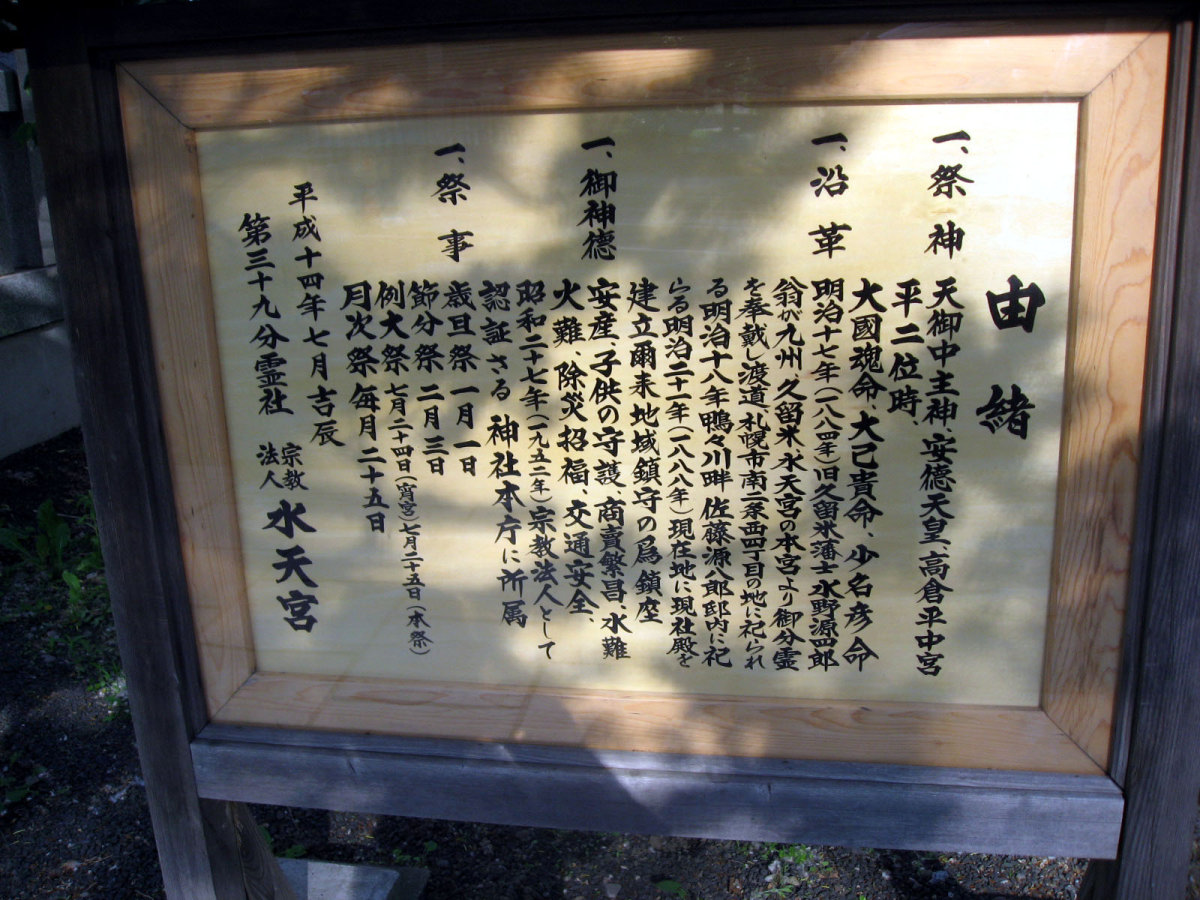 由緒
一、祭神 天御中主神、安徳天皇、高倉平中宮
平二位時、
大國魂命、大己貴命、少名彦命
一、沿革 明治十七年(一八八四年)旧久留米藩士水野源四郎
翁が九州久留米水天宮の本宮より御分霊
を奉戴し渡道、札幌市南二条西四丁目の地に祀られ
る明治十八年鴨々川畔佐藤源八郎邸内に祀
らる明治二十一年(一八八八年)現在地に現社殿を
建立爾来地域鎮守の為鎮座
一、御神徳 安産、子供の守護、商賣繁昌、水難
火難、除災招福、交通安全、
昭和二十七年(一九五二年)宗教法人として
認証さる 神社本庁に所属
一、祭事 歳旦祭 一月一日
節分祭 二月三日
例大祭 七月二十四日(宵宮)七月二十五日(本祭)
月次祭 毎月二十五日
平成十四年七月吉辰
第三十九分霊社 宗教法人 水天宮